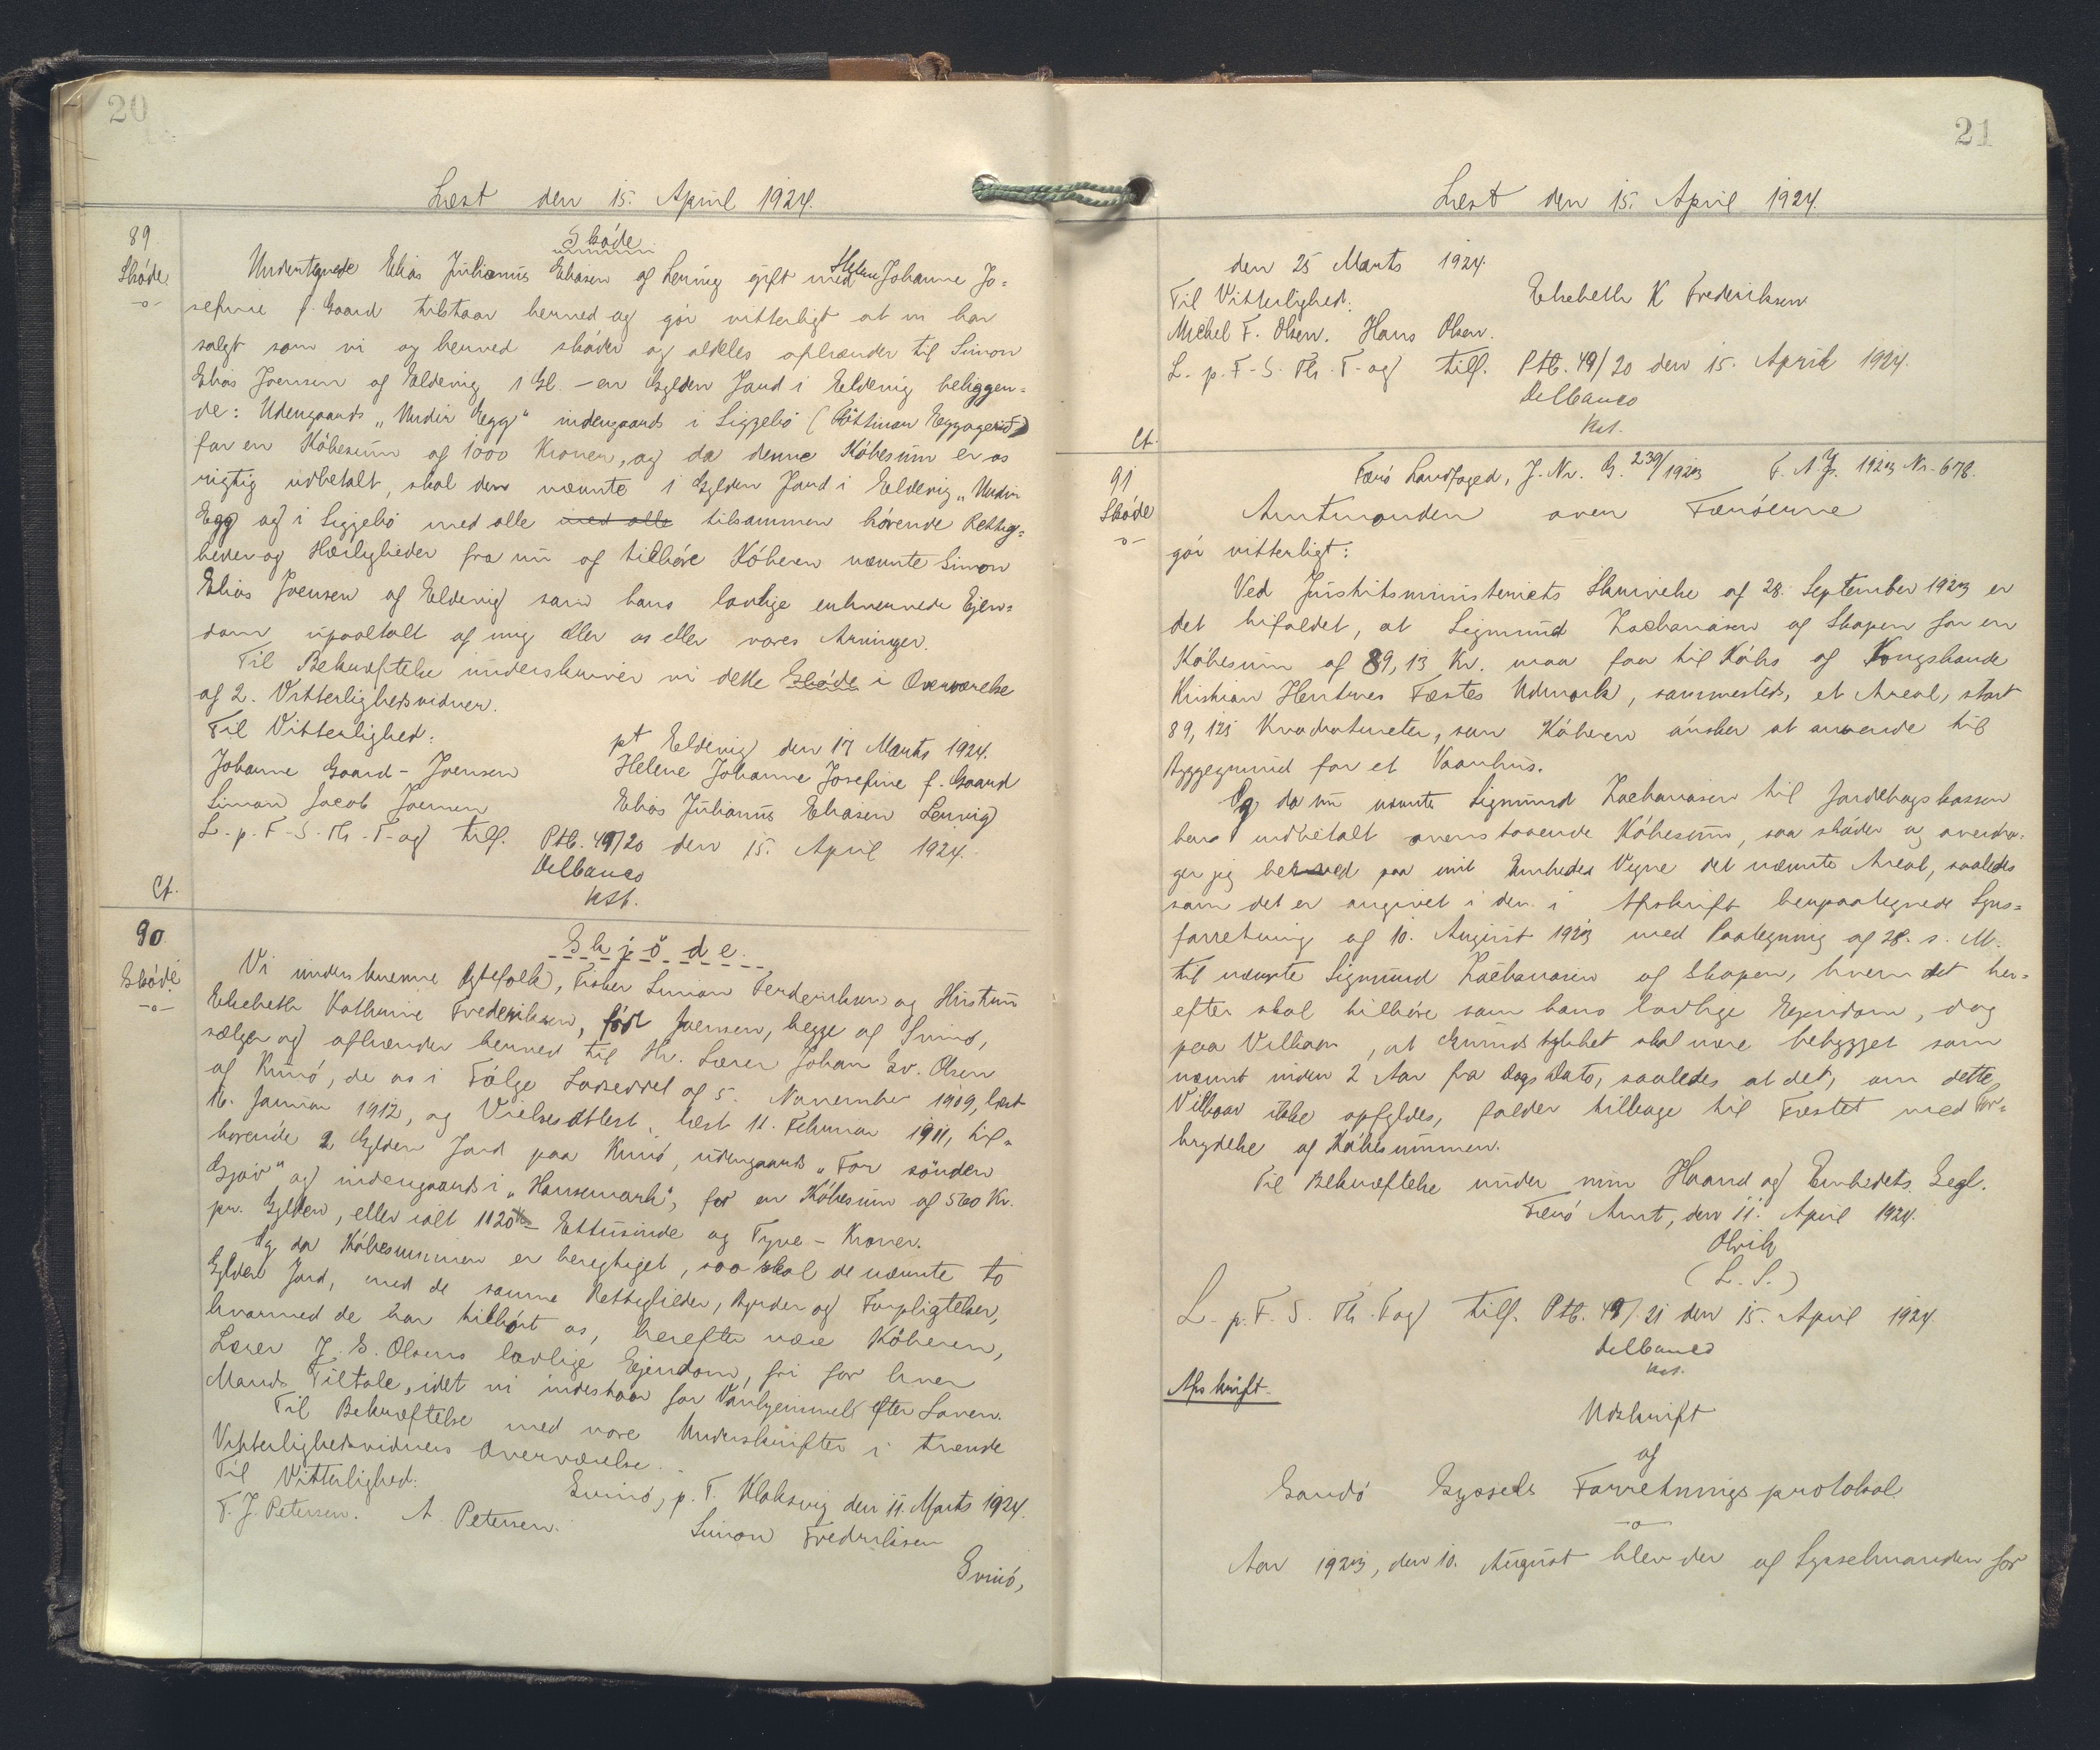 20
Læst den 15. April 1924.
89
Sköde
-o-
Sköde
Undertegnede Elias Julianus Eliasen af Lervig gift med Helene Johanne Jo=
sefine f. Gaard tilstaar herved og gör vitterligt at vi har
solgt som vi og herved sköder og aldeles afhænder til Simon
Elias Joensen af Eldevig 1 Gl. - en Gylden Jord i Eldevig beliggen=
de: Udengaards „Undir Egg“ indengaards i Siggebö (
for en Köbesum af 1000 Kroner, og da denne Köbesum er os
rigtig udbetalt, skal den nævnte 1 Gylden Jord i Eldevig „Undir
Egg og i Siggebö med alle med alle tilsammen hörende Rettig=
heder og Herligheder fra nu af tilhöre Köberen nævnte Simon
Elias Joensen af Eldevig som hans lovlige enhvervede Ejen=
dom upaatalt af mig eller os eller vores Arvinger.
Til Bekræftelse underskriver vi dette Sköde i Overværelse
af 2. Vitterlighedsvidner.
Til Vitterlighed:
pt Eldevig den 17 Marts 1924.
Johanne Gaard - Joensen
Helene Johanne Josefine f. Gaard
Simon Jacob Joensen
Elias Julianus Eliasen Lervig
L. p. F - S. Th. T - og Till. Ptb. 49/20 den 15. April 1924.
Delbanco
Kst.
Ct.
90
Sköde
-o-
Skjöde.
Vi underskrevne Ægtefolk, Fisker Simon Frederiksen og Hustru
Elsebeth Kathrine Frederiksen, född Joensen, begge af Svinö,
sælger og afhænder herved til Hr. Lærer Johan Ev. Olsen
af Kunö, de os i Fölge Lodseddel af 5. November 1909, læst
16. Januar 1912, og Vielsesattest, læst 11. Februar 1911, til=
hörende 2 Gylden Jord paa Kunö, udengaards „For sönden
Gjov“ og indengaards i „Hansemark“, for en Köbesum af 560 Kr.
pr. Gylden, eller ialt 1120 - Ettusinde og Tyve - Kroner.
Og da Köbesummen er berigtiget, saa skal de nævnte to
Gylden Jord, med de samme Rettigheder, Byrder og Forpligtelser,
hvormed de har tilhört os, herefter være Köberen,
Lærer J. E. Olsens lovlige Ejendom, fri for hver
Mands Tiltale, idet vi indestaar for Vanhjemmel efter Loven.
Til Bekræftelse med vore Underskrifter i trende
Vitterlighedsvidners Overværelse.
Til Vitterlighed:
Svinö, p. T. Klaksvig den 11. Marts 1924.
T. J. Petersen. A. Petersen.
Simon Frederiksen
Svinö,
21
Læst den 15. April 1924.
den 25 Marts 1924.
Til Vitterlighed:
Elsebeth K Frederiksen
Michel F. Olsen. Hans Olsen.
L. p. F - S. Th. T - og Till. Ptb. 49/20 den 15. April 1924.
Delbanco
Kst.
Ct.
91
Sköde
-o-
Færö Landfoged, J. Nr. G. 239/1923 F. A. J. 1923 Nr. 678.
Amtmanden over Færöerne
gör vitterligt:
Ved Justitsministeriets Skrivelse af 28. September 1923 er
det bifaldet, at Sigmund Zachariasen af Skopen for en
Köbesum af 89,13 Kr. maa faa til Köbs af Kongsbonde
Kristian Hentzes Fæstes Udmark, sammesteds, et Areal, stort
89,125 Kvadratmeter, som Köberen önsker at anvende til
Byggegrund for et Vaanhus.
Og da nu nævnte Sigmund Zachariasen til Jordebogskassen
har indbetalt ovenstaaende Köbesum, saa sköder og overdra-
ger jeg herved paa mit Embedes Vegne det nævnte Areal, saaledes
som det er angivet i den i Afskrift henpaategnede Syns=
forretning af 10. August 1923 med Paategning af 28. s. M.
til nævnte Sigmund Zachariasen af Skopen, hvem det her=
efter skal tilhöre som hans lovlige Ejendom, dog
paa Vilkaar, at Grundstykket skal være bebygget som
nævnt inden 2 Aar fra Dags Dato, saaledes at det, om dette
Vilkaar ikke opfyldes, falder tilbage til Fæstet med For=
brydelse af Köbesummen.
Til Bekræftelse under min Haand og Embedets Segl.
Færö Amt, den 11. April 1924.
Olrik
(L. S.)
L. p. F. S. Th. T og Till. Ptb. 49/21 den 15. April 1924
Delbanco
Kst.
Afskrift.
Udskrift
af
Sandö Syssels Forretningsprotokol.
-o-
Aar 1923, den 10. August blev der af Sysselmanden for